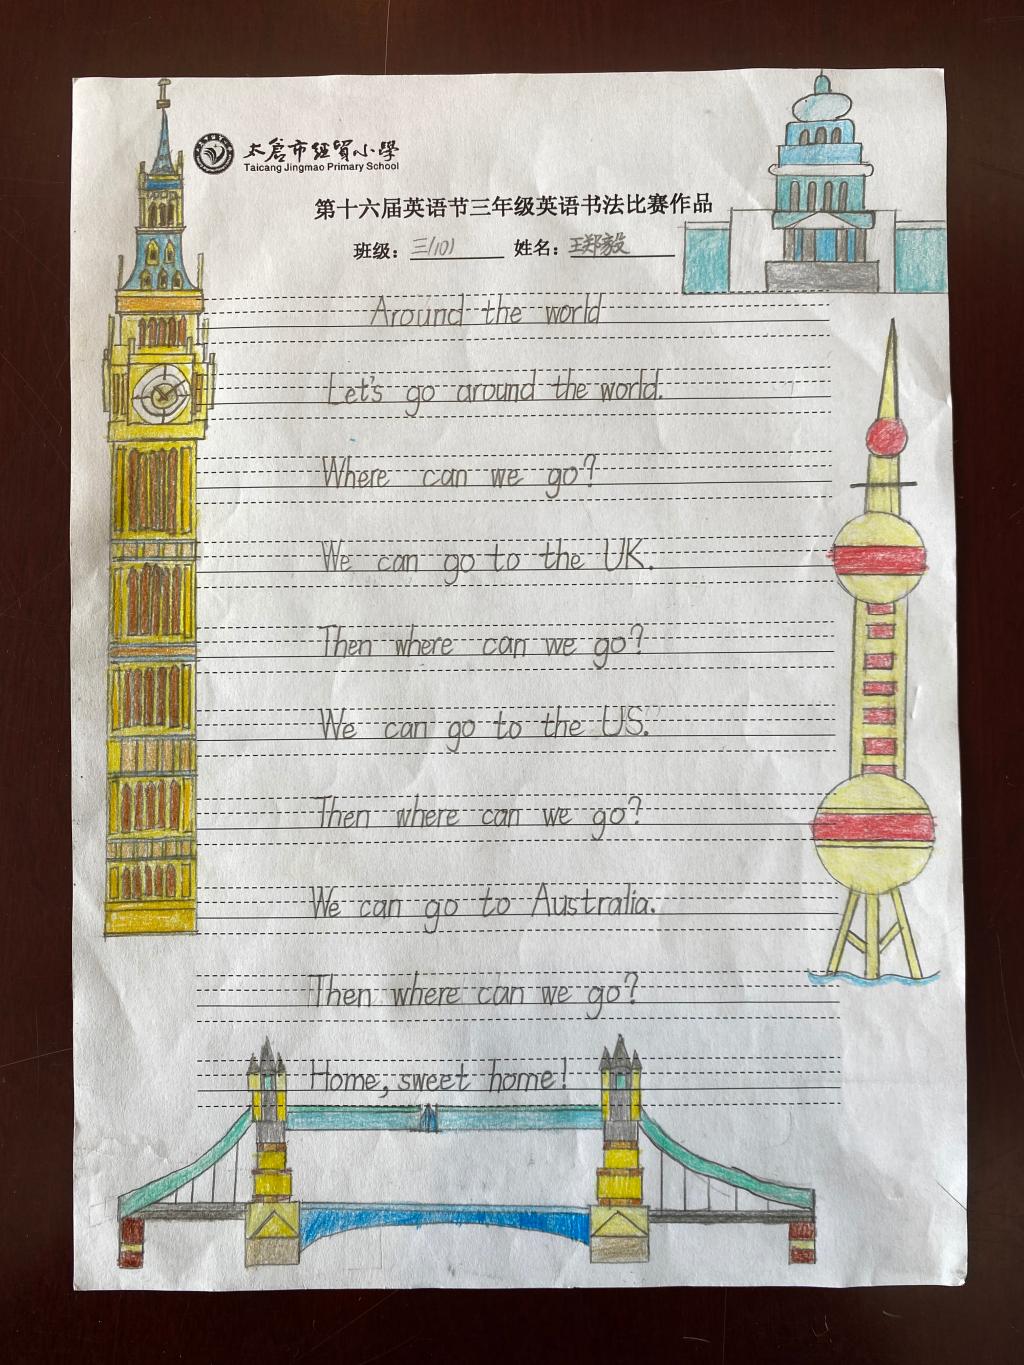 太仓市经贸小学
Taicang Jingmao Primary School
第十六届英语节三年级英语书法比赛作品
班级：三(10) 姓名：王郑毅
Around the world
Let's go around the world.
Where can we go?
We can go to the UK.
Then where can we go?
We can go to the US.
Then where can we go?
We can go to Australia.
Then where can we go?
Home, sweet home!